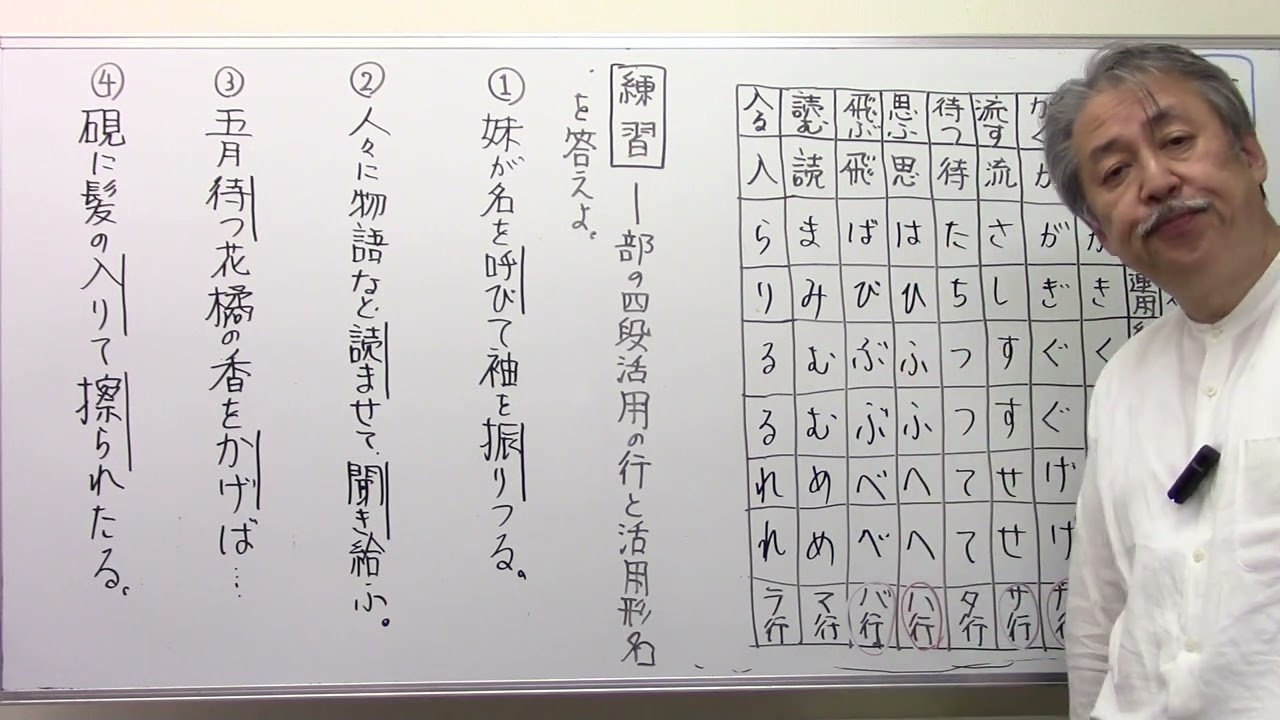 連用
き
く
が ぎ ぐ ぐ げ げ
流す 流 さ し す す せ せ サ行
待つ 待 た ち つ つ て て タ行
思ふ 思 は ひ ふ ふ へ へ ハ行
飛ぶ 飛 ば び ぶ ぶ べ べ バ行
読む 読 ま み む む め め マ行
入る 入 ら り る る れ れ ラ行
練習 ―部の四段活用の行と活用形名
を答えよ。
① 妹が名を呼びて袖を振りつる。
② 人々に物語など読ませて、聞き給ふ。
③ 五月待つ花橘の香をかげば…
④ 硯に髪の入りて擦られたる。